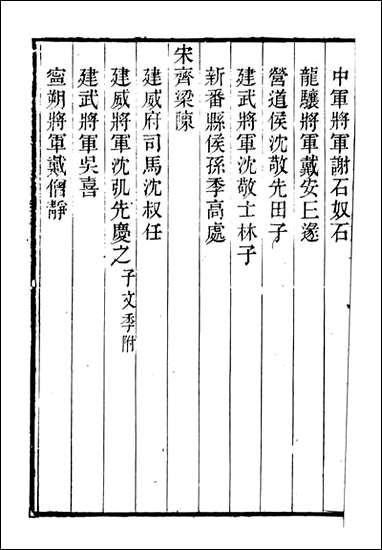 中軍將軍謝石奴石
龍驤將軍戴安丘邃
營道侯沈敬先田子
建武將軍沈敬士林子
新番縣侯孫季高處
宋齊梁陳
建威府司馬沈叔任
建威將軍沈凱先慶之子文季附
建武將軍吳喜
寧朔將軍戴僧靜